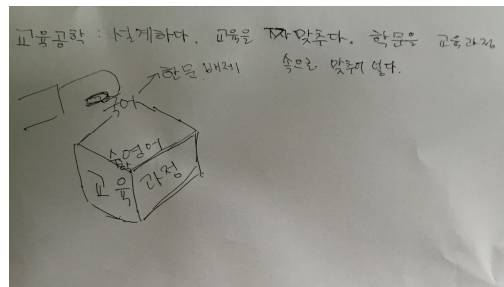 교육공학 : 설계하다. 교육을 짜맞추다. 학문을 교육과정
속으로 맞추어 넣다.
한문 배제
국어
수학 영어
교육 과정